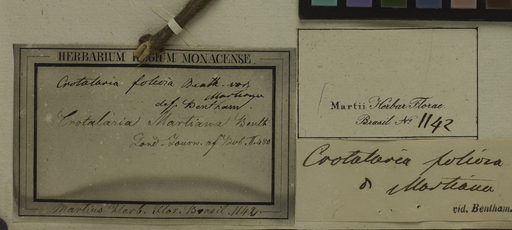 HERBARIUM REGIUM MONACENSE.
Crotalaria foliosa Benth. var.
Martiana
def. Bentham.
Crotalaria Martiana Benth
Lond. Journ. of Bot. II. 480
Martius Herb. Flor. Brasil. 1142.
Martii Herbar. Florae
Brasil. No 1142
Crotalaria foliosa
Martiana
vid. Bentham.